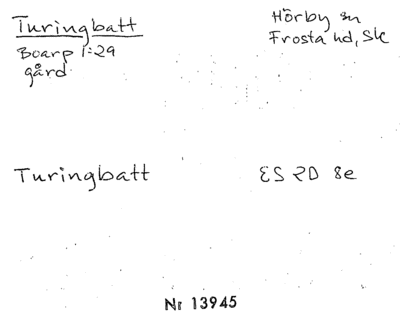 Turingbatt
Boarp 1:29
gård
Hörby sn
Frosta hd, Sk
Turingbatt
ES 2D 8e
Nr 13945